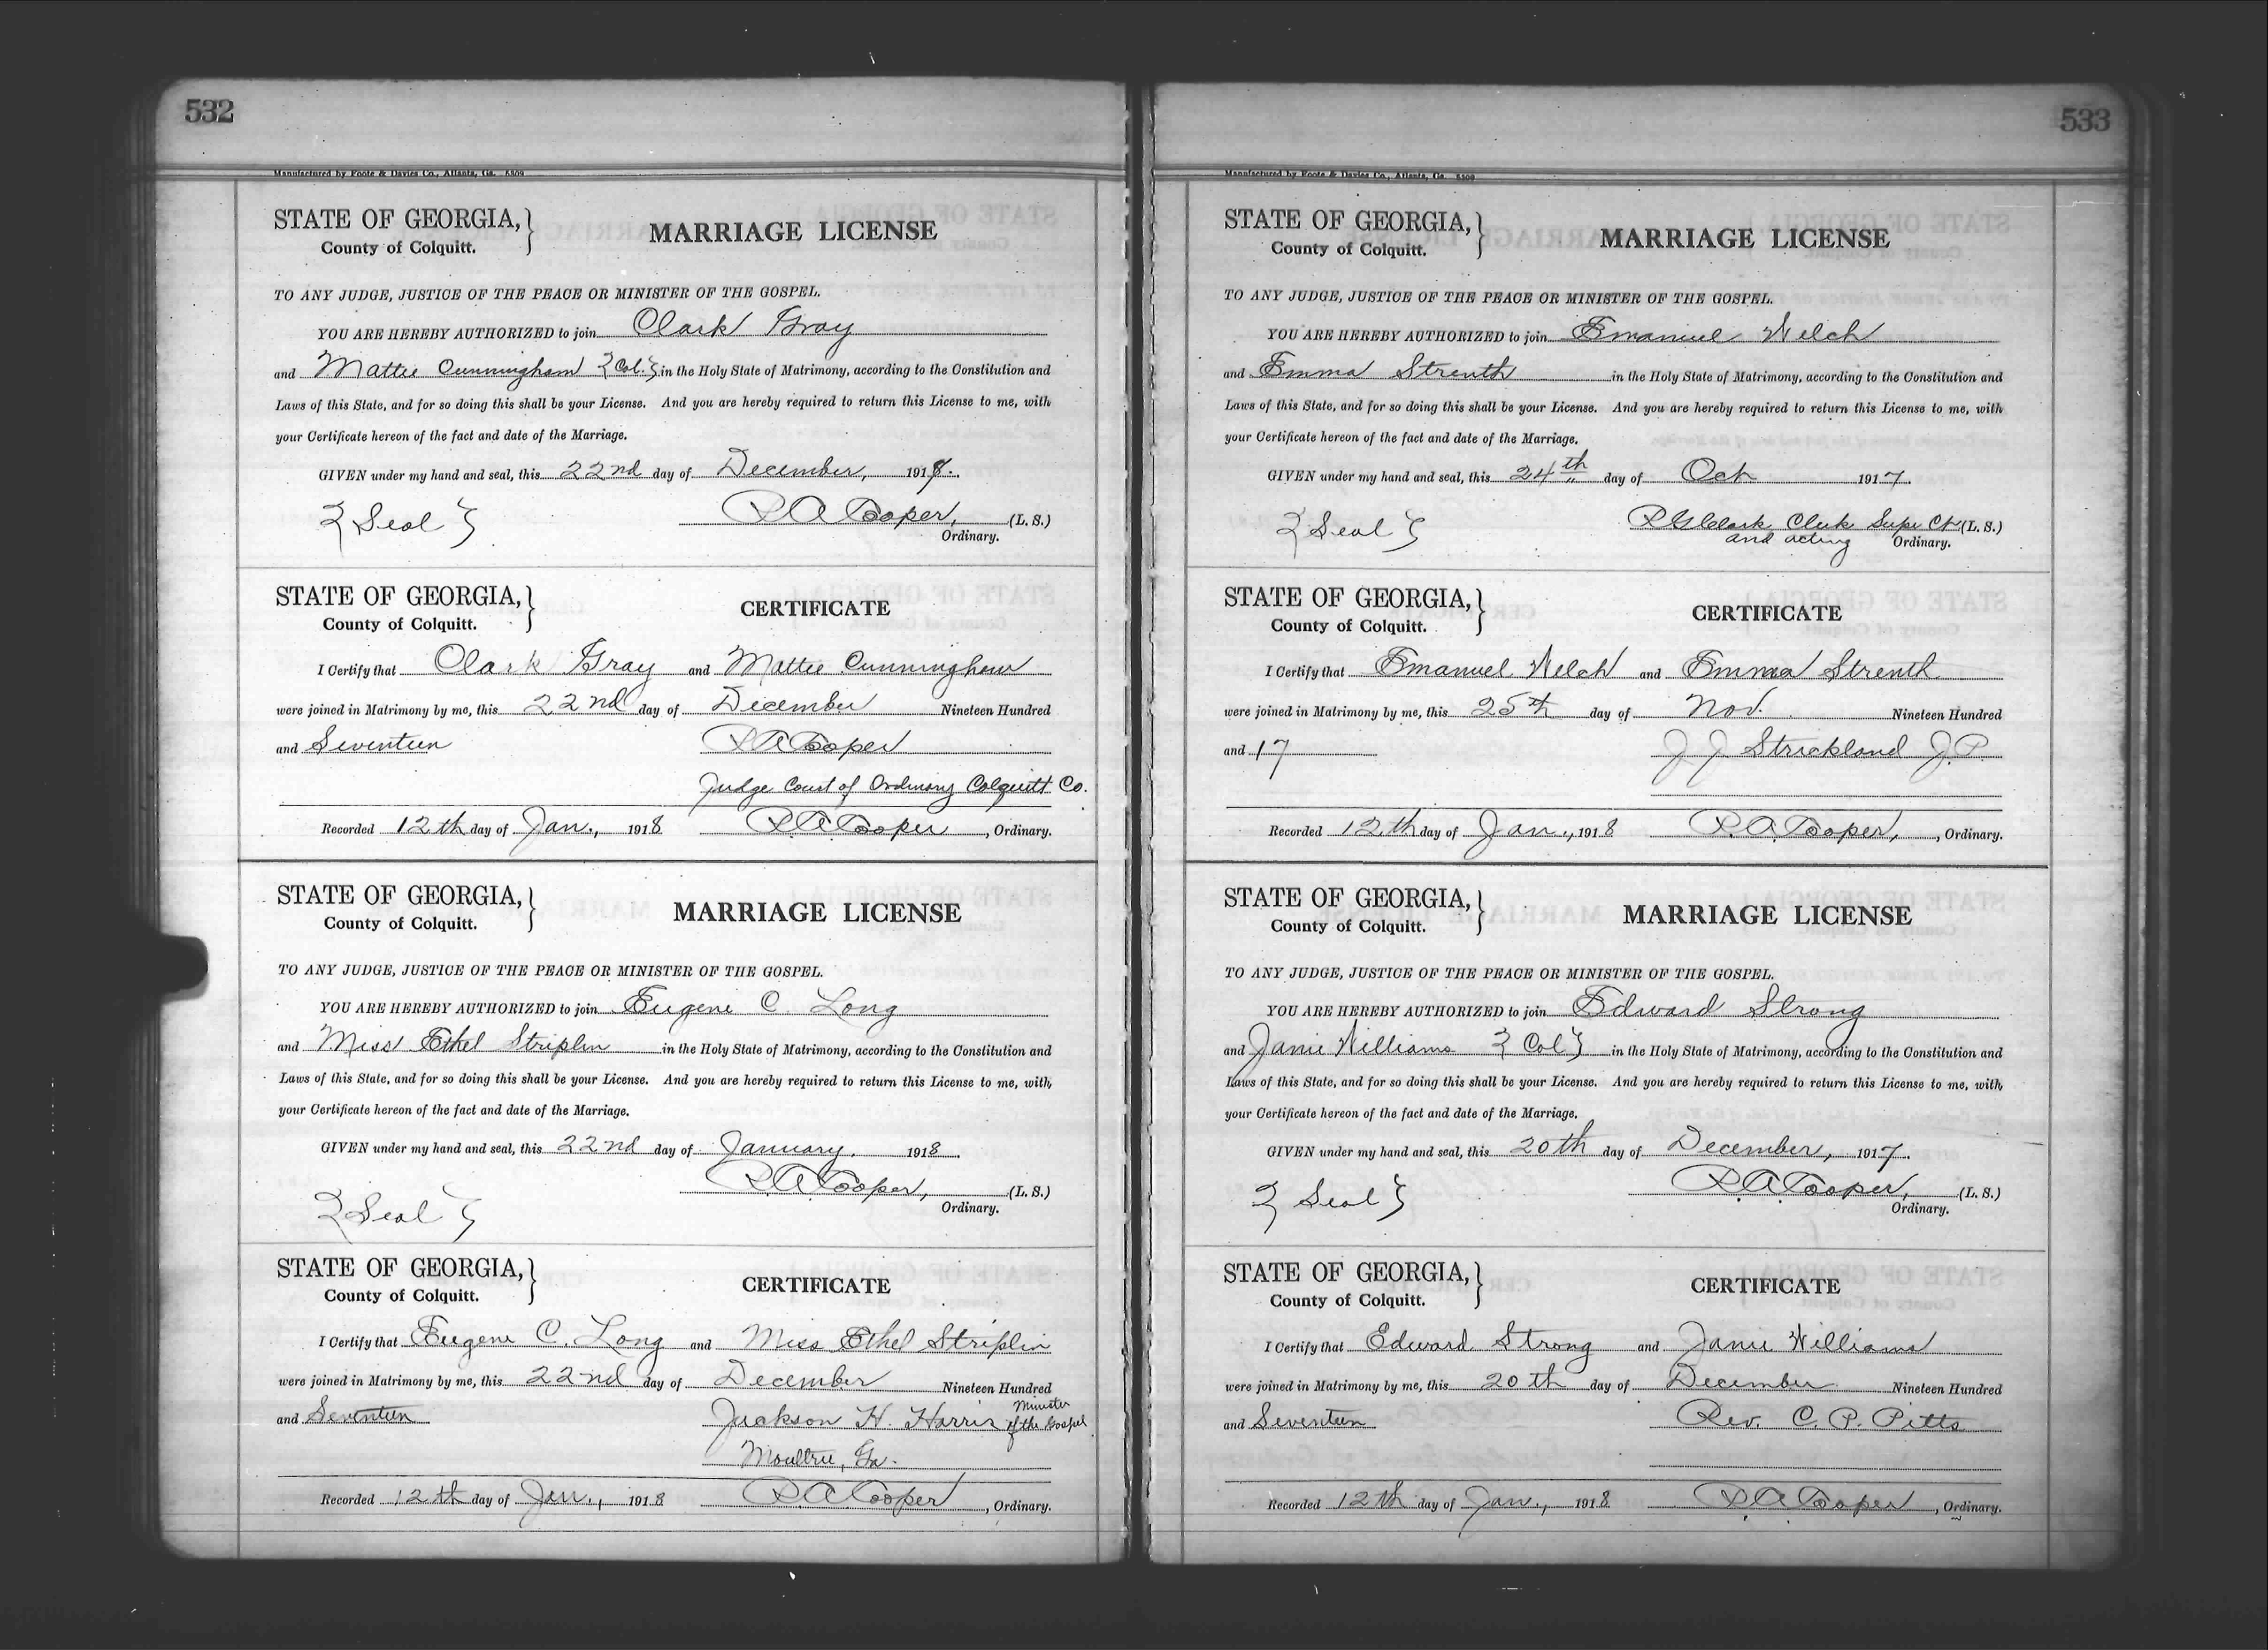 532
Manufactured by Foote & Davies Co., Atlanta, Ga. 5509
STATE OF GEORGIA,
County of Colquitt.
MARRIAGE LICENSE
TO ANY JUDGE, JUSTICE OF THE PEACE OR MINISTER OF THE GOSPEL.
YOU ARE HEREBY AUTHORIZED to join Clark Gray
and Mattie Cunningham {Col.} in the Holy State of Matrimony, according to the Constitution and
Laws of this State, and for so doing this shall be your License. And you are hereby required to return this License to me, with
your Certificate hereon of the fact and date of the Marriage.
GIVEN under my hand and seal, this 22nd day of December, 1918.
{Seal} R A Cooper, (L. S.)
Ordinary.
STATE OF GEORGIA,
County of Colquitt.
CERTIFICATE
I Certify that Clark Gray and Mattie Cunningham
were joined in Matrimony by me, this 22nd day of December Nineteen Hundred
and Seventeen R A Cooper
Judge Court of Ordinary Colquitt Co.
Recorded 12th day of Jan., 1918 R. A. Cooper, Ordinary.
STATE OF GEORGIA,
County of Colquitt.
MARRIAGE LICENSE
TO ANY JUDGE, JUSTICE OF THE PEACE OR MINISTER OF THE GOSPEL.
YOU ARE HEREBY AUTHORIZED to join Eugene C. Long
and Miss Ethel Striplin in the Holy State of Matrimony, according to the Constitution and
Laws of this State, and for so doing this shall be your License. And you are hereby required to return this License to me, with
your Certificate hereon of the fact and date of the Marriage.
GIVEN under my hand and seal, this 22nd day of January. 1918.
{Seal} R. A. Cooper, (L. S.)
Ordinary.
STATE OF GEORGIA,
County of Colquitt.
CERTIFICATE
I Certify that Eugene C. Long and Miss Ethel Striplin
were joined in Matrimony by me, this 22nd day of December Nineteen Hundred
and Seventeen Jackson H. Harris Minister of the Gospel
Moultrie, Ga.
Recorded 12th day of Jan., 1918 R. A. Cooper, Ordinary.
533
Manufactured by Foote & Davies Co., Atlanta, Ga. 5509
STATE OF GEORGIA,
County of Colquitt.
MARRIAGE LICENSE
TO ANY JUDGE, JUSTICE OF THE PEACE OR MINISTER OF THE GOSPEL.
YOU ARE HEREBY AUTHORIZED to join Emanuel Welch
and Emma Strenth in the Holy State of Matrimony, according to the Constitution and
Laws of this State, and for so doing this shall be your License. And you are hereby required to return this License to me, with
your Certificate hereon of the fact and date of the Marriage.
GIVEN under my hand and seal, this 24th day of Oct 1917.
{Seal} R G Clark Clerk Supr Ct (L. S.)
and acting Ordinary.
STATE OF GEORGIA,
County of Colquitt.
CERTIFICATE
I Certify that Emanuel Welch and Emma Strenth
were joined in Matrimony by me, this 25th day of Nov. Nineteen Hundred
and 17 J J Strickland J.P.
Recorded 12th day of Jan., 1918 R. A. Cooper, Ordinary.
STATE OF GEORGIA,
County of Colquitt.
MARRIAGE LICENSE
TO ANY JUDGE, JUSTICE OF THE PEACE OR MINISTER OF THE GOSPEL.
YOU ARE HEREBY AUTHORIZED to join Edward Strong
and Janie Williams {Col} in the Holy State of Matrimony, according to the Constitution and
Laws of this State, and for so doing this shall be your License. And you are hereby required to return this License to me, with
your Certificate hereon of the fact and date of the Marriage.
GIVEN under my hand and seal, this 20th day of December, 1917.
{Seal} R. A. Cooper, (L. S.)
Ordinary.
STATE OF GEORGIA,
County of Colquitt.
CERTIFICATE
I Certify that Edward Strong and Janie Williams
were joined in Matrimony by me, this 20th day of December Nineteen Hundred
and Seventeen Rev. C. P. Pitts
Recorded 12th day of Jan., 1918 R. A. Cooper, Ordinary.